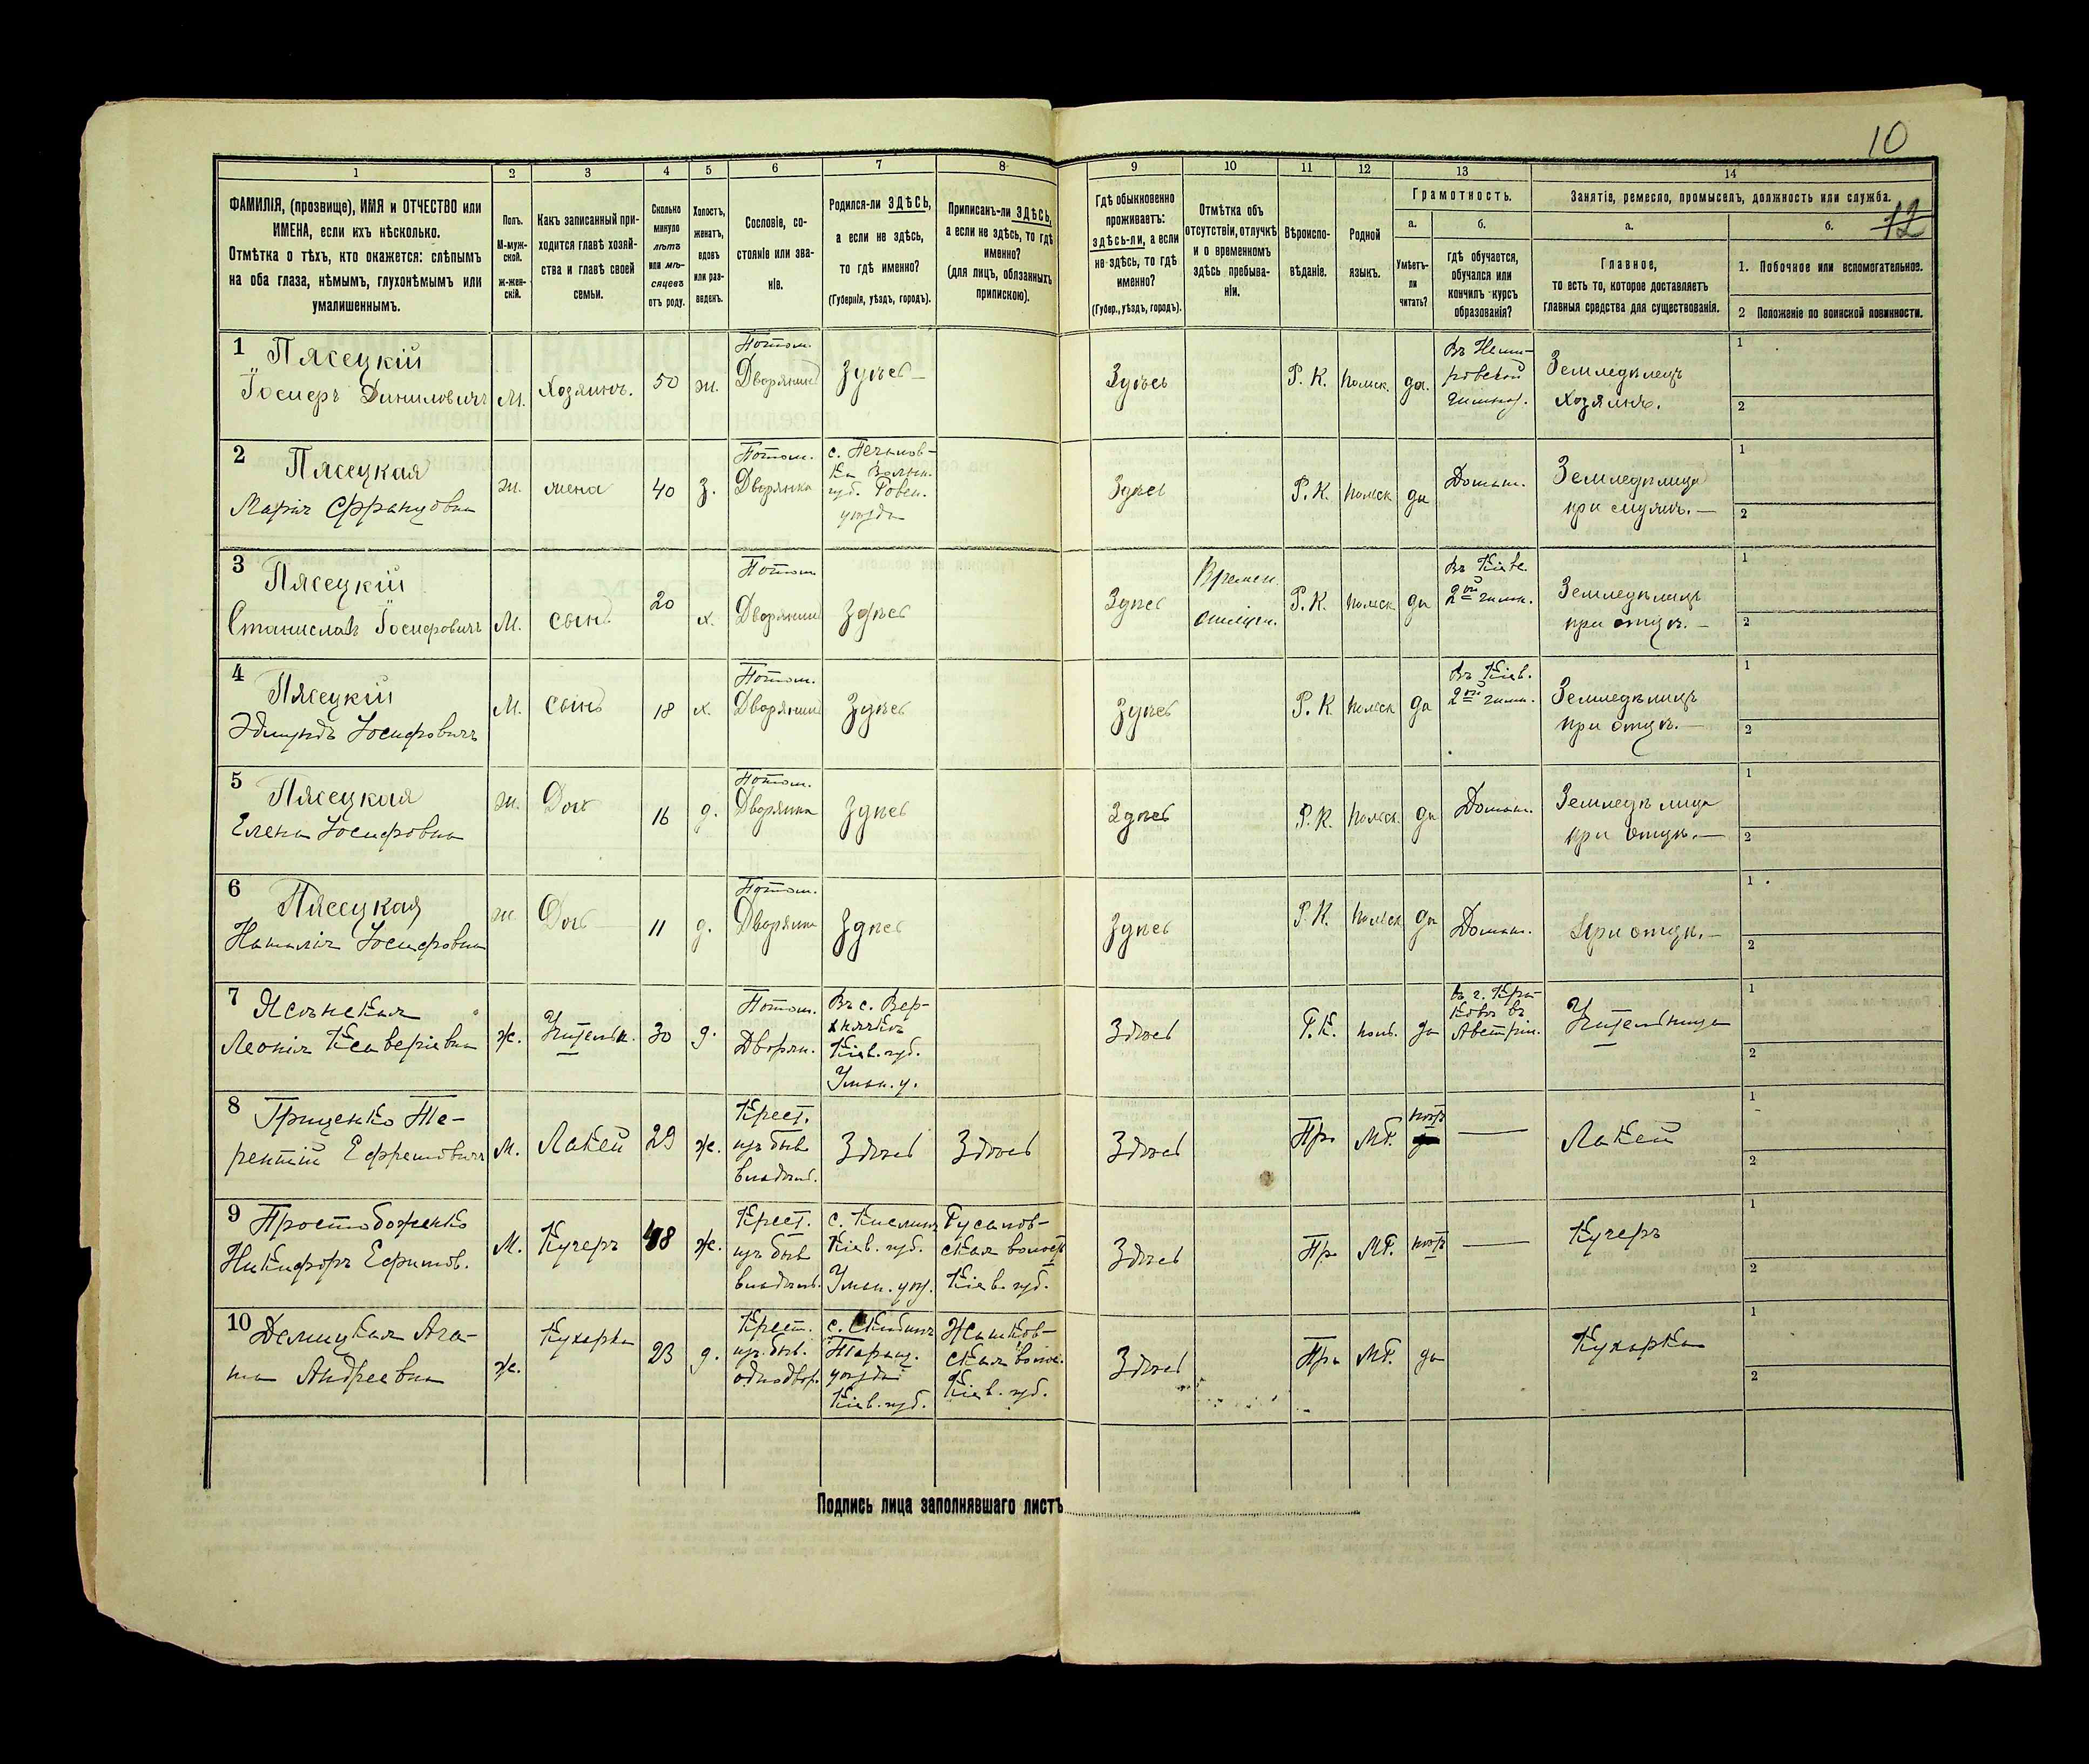 10
12
1 2 3 4 5 6 7 8 9 10 11 12 13 14
ФАМИЛІЯ, (прозвище), ИМЯ и ОТЧЕСТВО или
ИМЕНА, если ихъ нѣсколько.
Отмѣтка о тѣхъ, кто окажется: слѣпымъ
на оба глаза, нѣмымъ, глухонѣмымъ или
умалишеннымъ.
Полъ.
М-муж-
ской.
ж-жен-
скій.
Какъ записанный при-
ходится главѣ хозяй-
ства и главѣ своей
семьи.
Сколько
минуло
лѣтъ
или мѣ-
сяцевъ
отъ роду.
Холостъ,
женатъ,
вдовъ
или раз-
веденъ.
Сословіе, со-
стояніе или зва-
ніе.
Родился-ли ЗДѢСЬ,
а если не здѣсь,
то гдѣ именно?
(Губернія, уѣздъ, городъ).
Приписанъ-ли ЗДѢСЬ,
а если не здѣсь, то гдѣ
именно?
(для лицъ, обязанныхъ
припискою).
Гдѣ обыкновенно
проживаетъ:
здѣсь-ли, а если
не здѣсь, то гдѣ
именно?
(Губер., уѣздъ, городъ).
Отмѣтка объ
отсутствіи, отлучкѣ
и о временномъ
здѣсь пребыва-
ніи.
Вѣроиспо-
вѣданіе.
Родной
языкъ.
Грамотность.
а.
Умѣетъ-
ли
читать?
б.
гдѣ обучается,
обучался или
кончилъ курсъ
образованія?
Занятія, ремесло, промыселъ, должность или служба.
а.
Главное,
то есть то, которое доставляетъ
главныя средства для существованія.
б.
1. Побочное или вспомогательное.
2 Положеніе по воинской повинности.
1 Пясецкій
Іосифъ Даниловичъ
М.
Хозяинъ.
50
ж.
Потом.
Дворянинъ
Здѣсь
Здѣсь
Р. К.
польск.
да.
Въ Неми-
ровской
гимназ.
Земледѣлецъ
хозяинъ.
1
2
2 Пясецкая
Марія Францовна
ж.
жена
40
з.
Потом.
Дворянка
губ. Ровен.
уѣзда
Здѣсь
Р. К.
польск
да
Домаш.
Земледѣлица
при мужѣ.
1
2
3 Пясецкій
Станиславъ Іосифовичъ
М.
сынъ
20
х.
Потом.
Дворянинъ
Здѣсь
Здѣсь
Времен.
Р. К.
польск
да
Въ Кіеве.
2ой гимн.
Земледѣлецъ
при отцѣ.
1
2
4 Пясецкій
Эдмундъ Іосифовичъ
М.
сынъ
18
х.
Потом.
Дворянинъ
Здѣсь
Здѣсь
Р. К.
польск
да
Въ Кіев.
2ой гимн.
Земледѣлецъ
при отцѣ.
1
2
5 Пясецкая
Елена Іосифовна
ж.
Дочь
16
д.
Потом.
Дворянка
Здѣсь
Здѣсь
Р. К.
польск.
да
Домаш.
Земледѣлица
при отцѣ.
1
2
6 Пясецкая
Наталія Іосифовна
ж.
Дочь
11
д.
Потом.
Дворянка
Здѣсь
Здѣсь
Р. К.
польск
да
Домаш.
при отцѣ.
1
2
7
Леонія Ксаверіевна
ж.
Учительн.
30
д.
Потом.
Дворян.
Въ с. Вер-
хнячкѣ
Кіев. губ.
Уман. у.
Здѣсь
Р. К.
поль.
да
въ г. Кра-
ковѣ въ
Австріи.
Учительница
1
2
8 Гриценко Те-
рентій Ефремовичъ
М.
Лакей
29
ж.
Крест.
изъ быв
владѣльч.
Здѣсь
Здѣсь
Здѣсь
Пр.
МР.
нѣтъ
Лакей
1
2
9 Простобоженко
Никифоръ Ефимов.
М.
Кучеръ
48
ж.
Крест.
изъ быв
владѣльч.
Кіев. губ.
Уман. уѣз.
Русалов-
ская волость
Кіев. губ.
Здѣсь
Пр.
МР.
нѣтъ
Кучеръ
1
2
10
Ага-
па Андреевна
ж.
Кухарка
23
д.
Крест.
изъ быв.
однодвор.
Таращ.
уѣзда
Кіев. губ.
Жашков-
ская волос.
Кіев. губ.
Здѣсь
Пра
МР.
да
Кухарка
1
2
Подпись лица заполнявшаго листъ